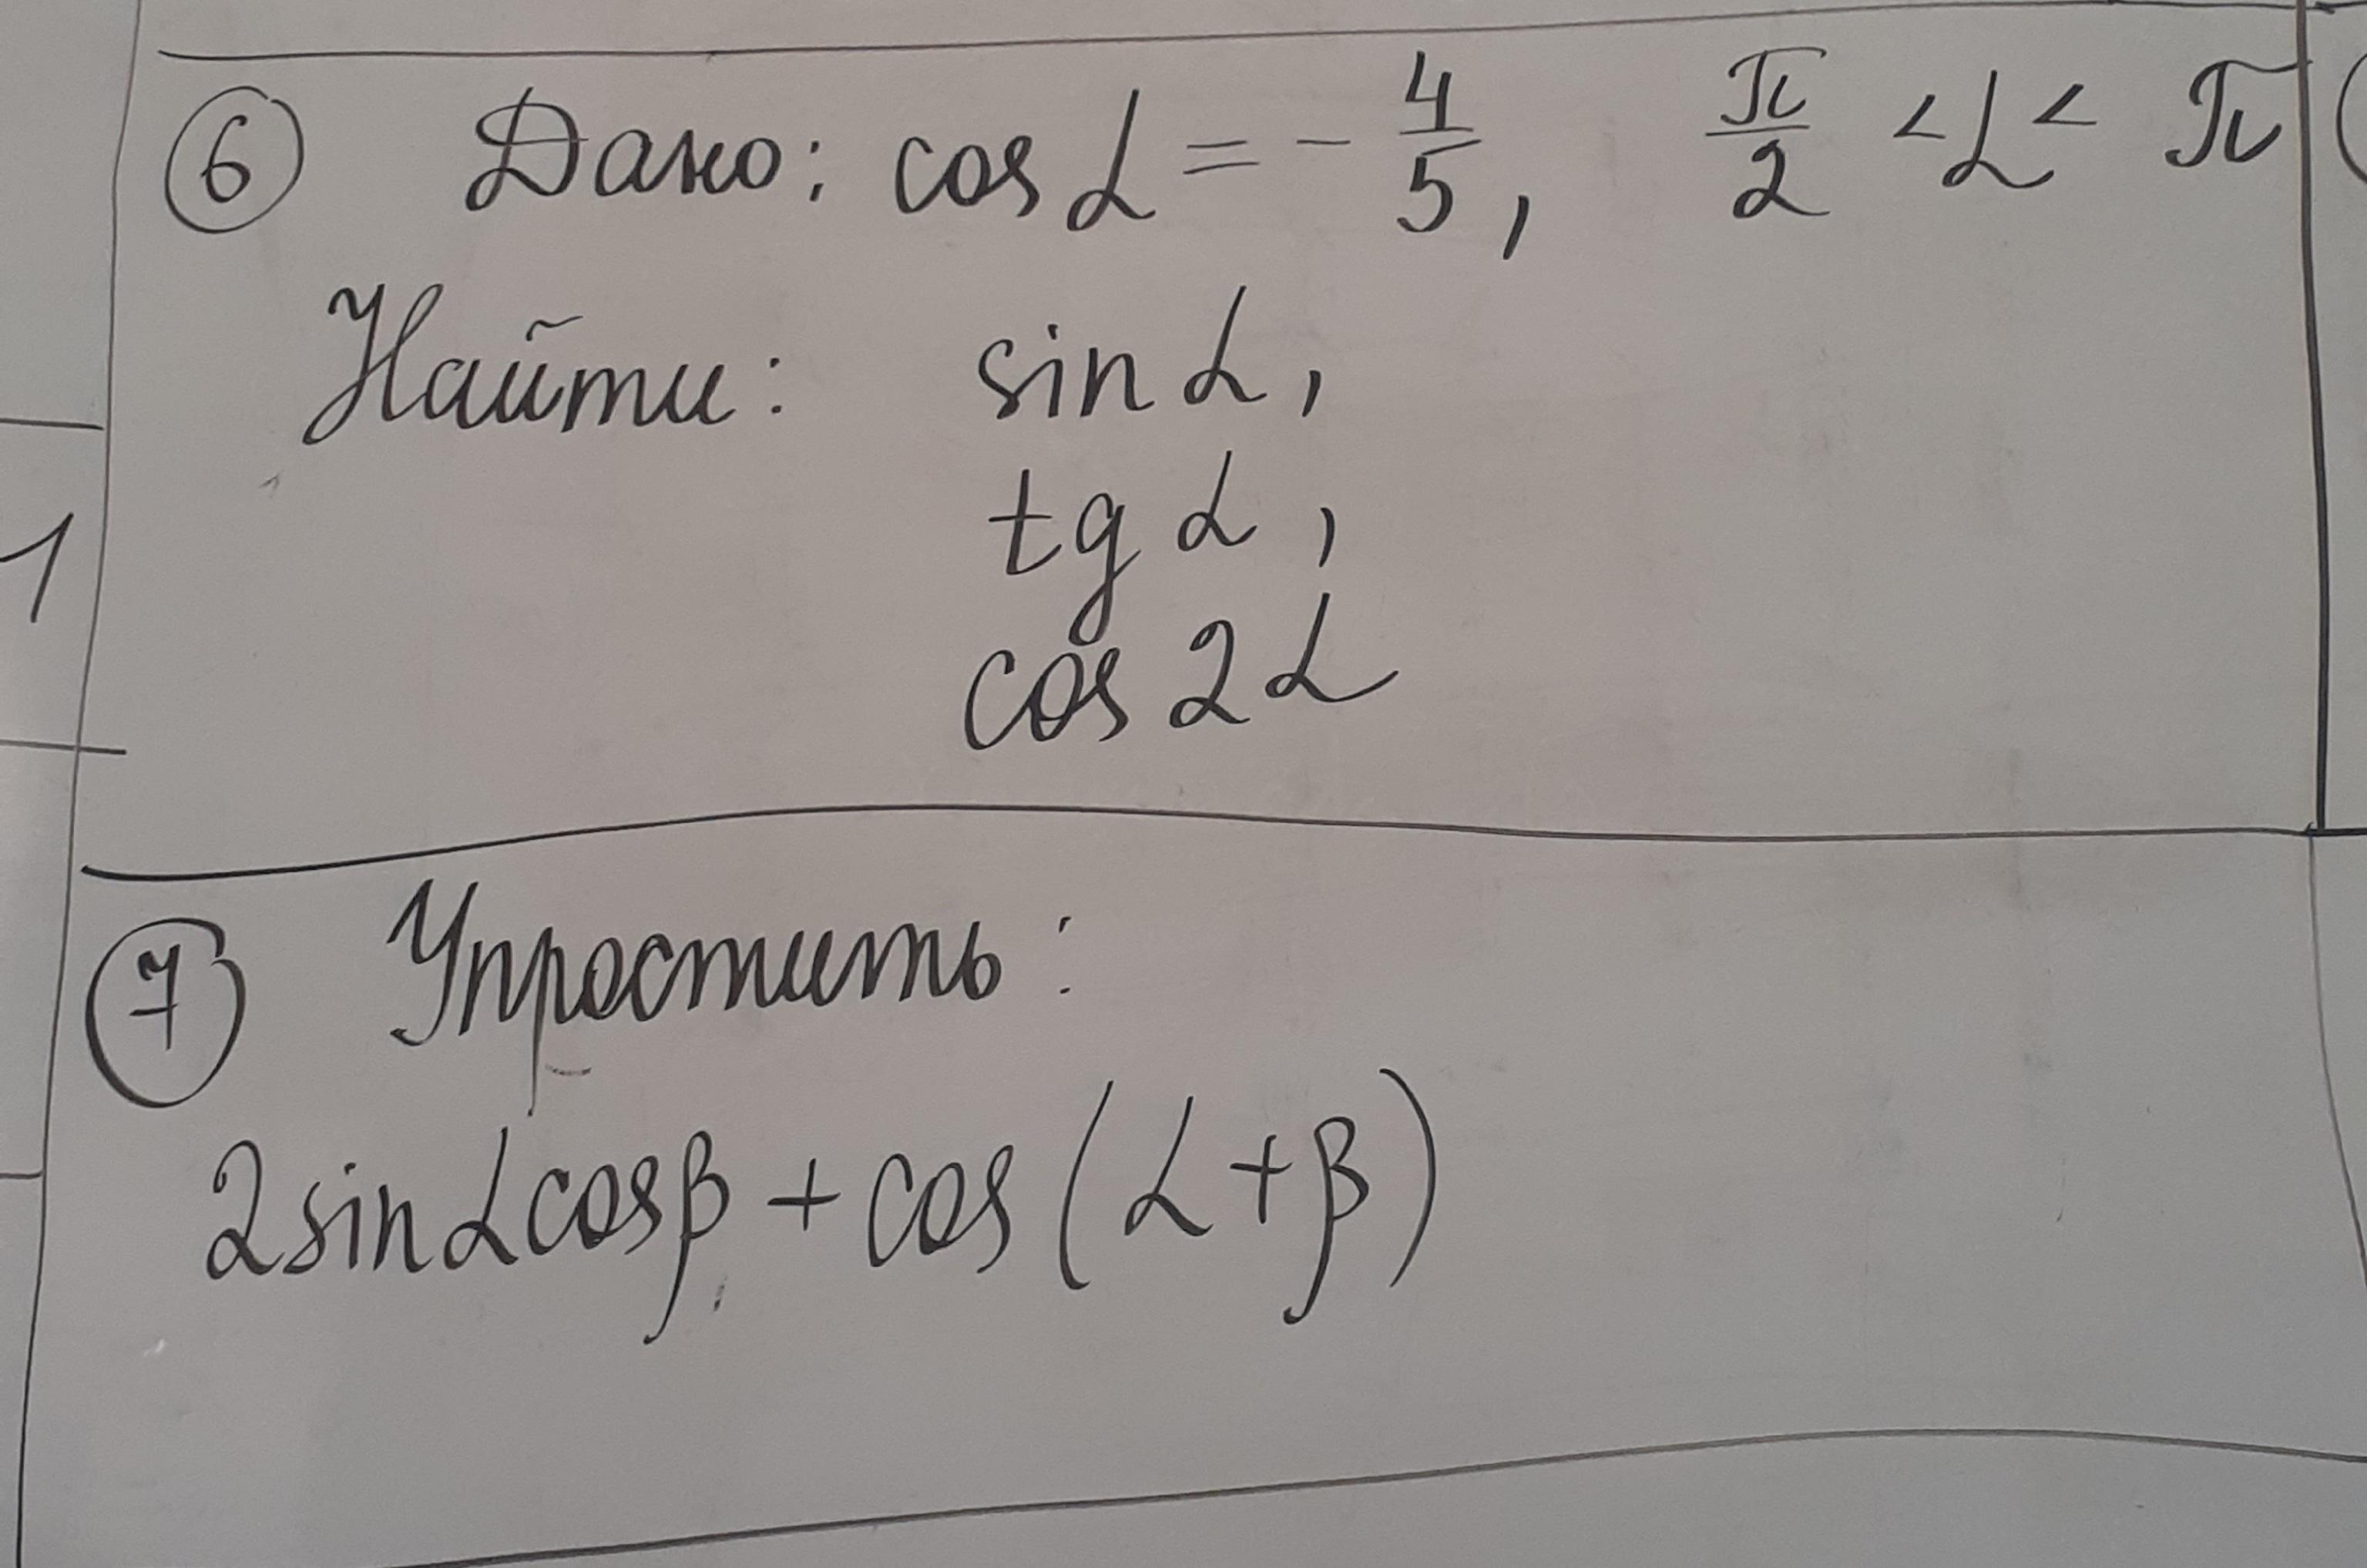 ⑥ Дано: cos α = - 4/5, π/2 < α < π
Найти: sin α,
tg α,
cos 2α
1
⑦ Упростить:
2 sin α cos β + cos (α + β)